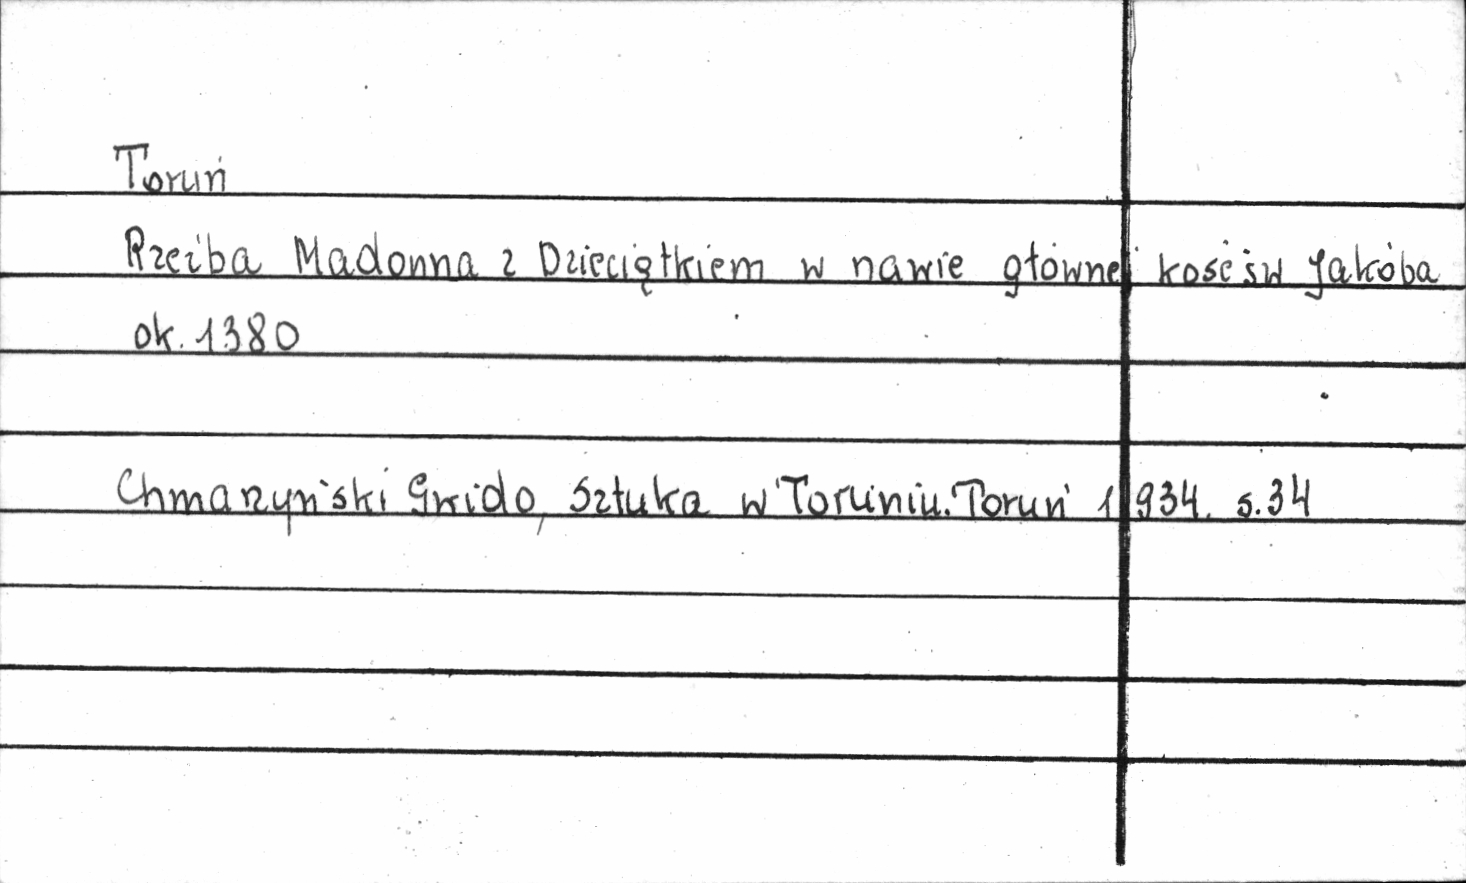 Toruń
Rzeźba Madonna z Dzieciątkiem w nawie głównej kość św Jakóba
ok. 1380
Chmarzyński Gwido, Sztuka w Toruniu. Toruń 1934. s. 34